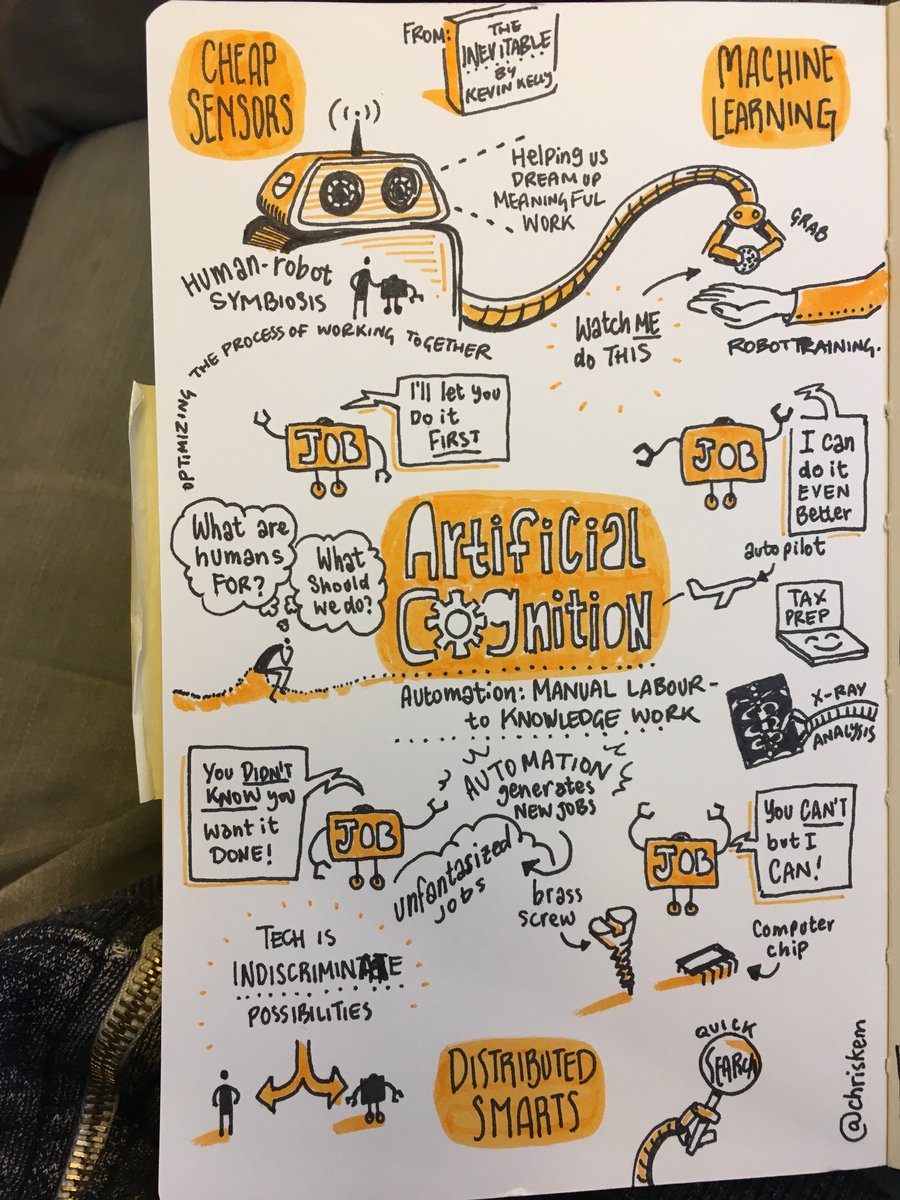 CHEAP
SENSORS
FROM:
THE
INEVITABLE
BY
KEVIN KELLY
MACHINE
LEARNING
Helping us
DREAM UP
MEANINGFUL
WORK
GRAB
Human-robot
SYMBIOSIS
OPTIMIZING THE PROCESS OF WORKING TOGETHER
Watch ME
do THIS
ROBOT TRAINING.
JOB
I'll let you
Do it
FIRST
JOB
I can
do it
EVEN
Better
What are
humans
FOR?
What
Should
we do?
Artificial
Cognition
autopilot
TAX
PREP
X-RAY
ANALYSIS
Automation: MANUAL LABOUR-
to KNOWLEDGE WORK
You DIDN'T
KNOW you
want it
DONE!
JOB
AUTOMATION
generates
NEW JOBS
unfantasized
jobs
JOB
You CAN'T
but I
CAN!
brass
screw
Computer
chip
TECH IS
INDISCRIMINATE
POSSIBILITIES
DISTRIBUTED
SMARTS
QUICK
SEARCH
@chriskem